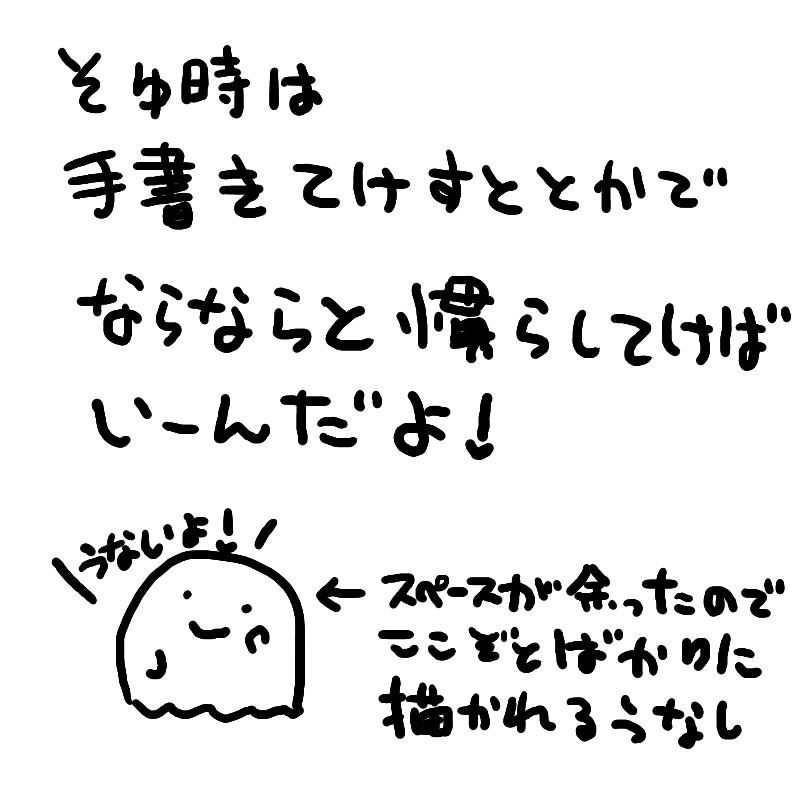 そゆ時は
手書きてけすととかで
ならならと慣らしてけば
いーんだよ!
\うないよ!/
←スペースが余ったので
ここぞとばかりに
描かれるうなし